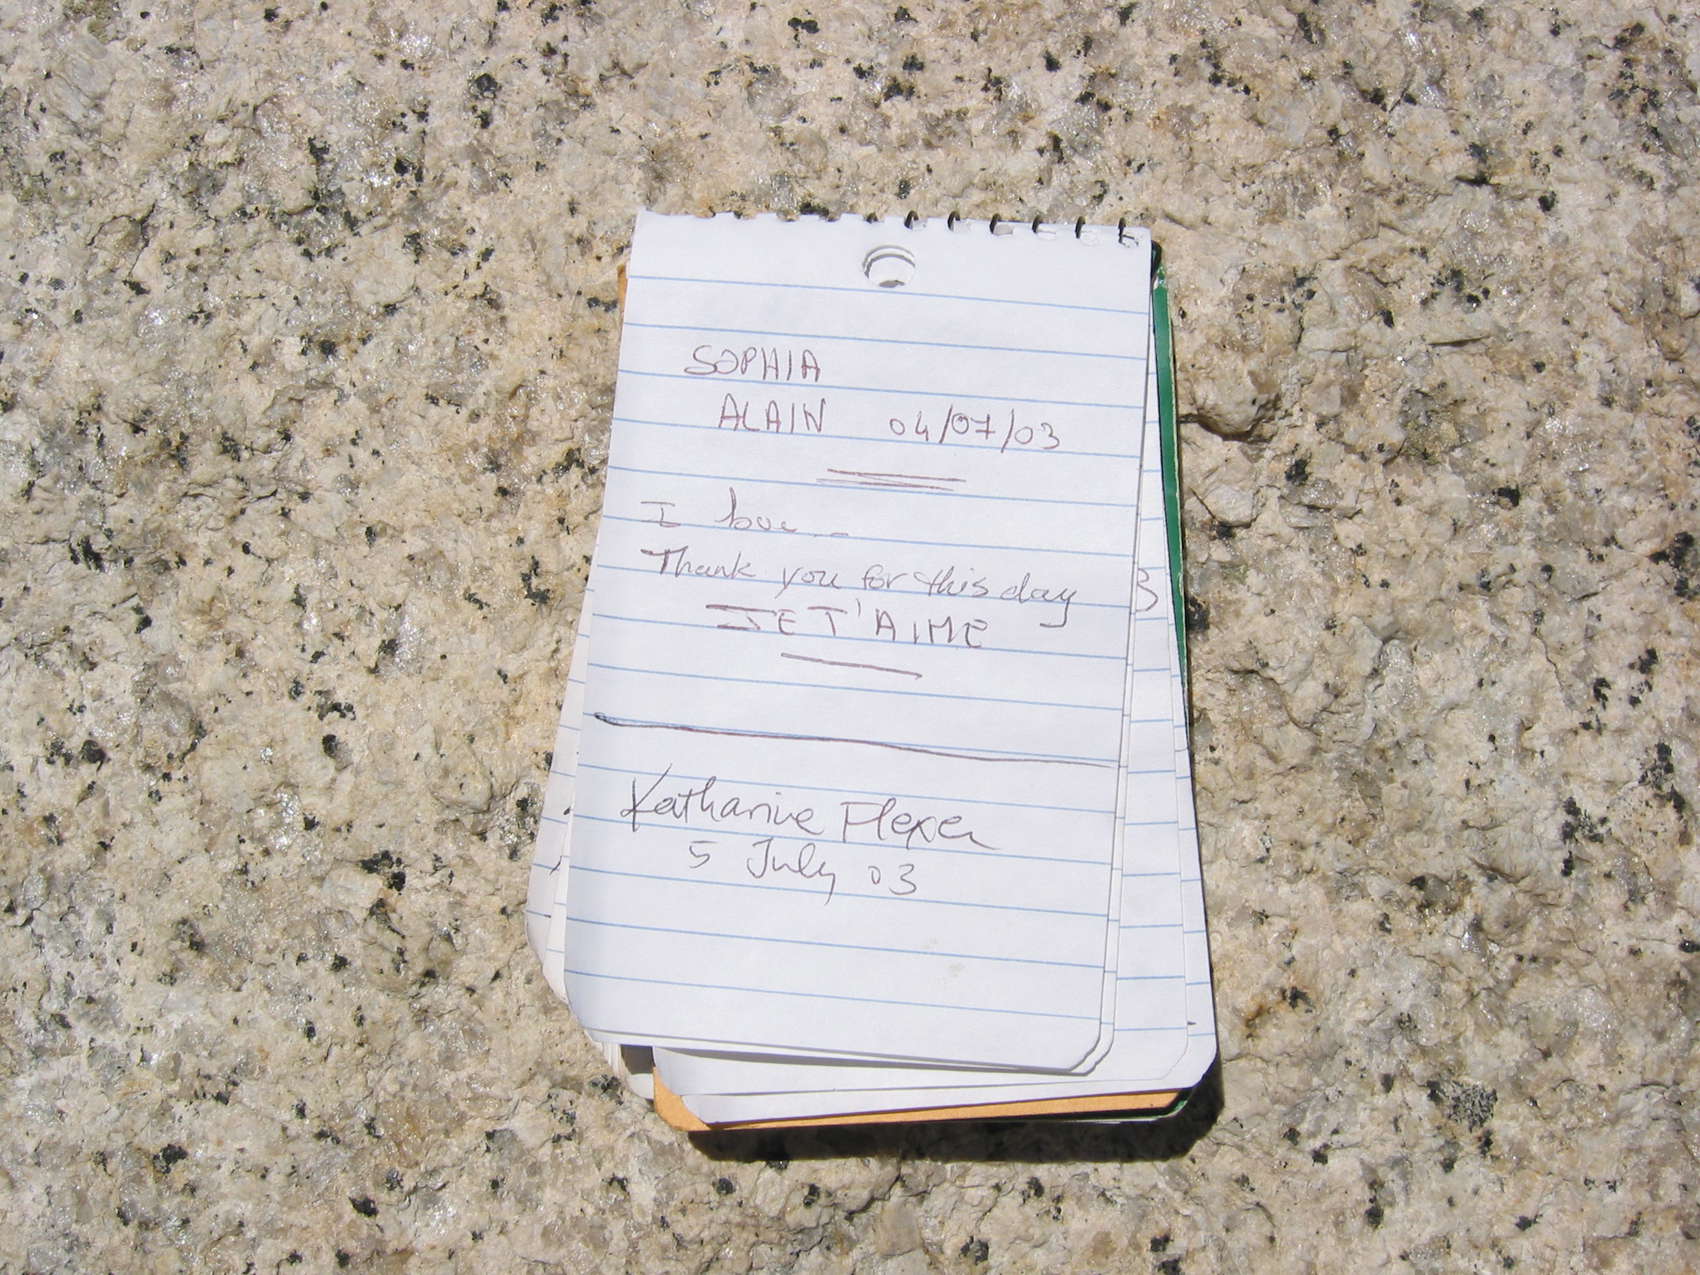 SOPHIA
ALAIN 04/07/03
I love...
Thank you for this day
JE T'AIME
Katharine Flexer
5 July 03
3